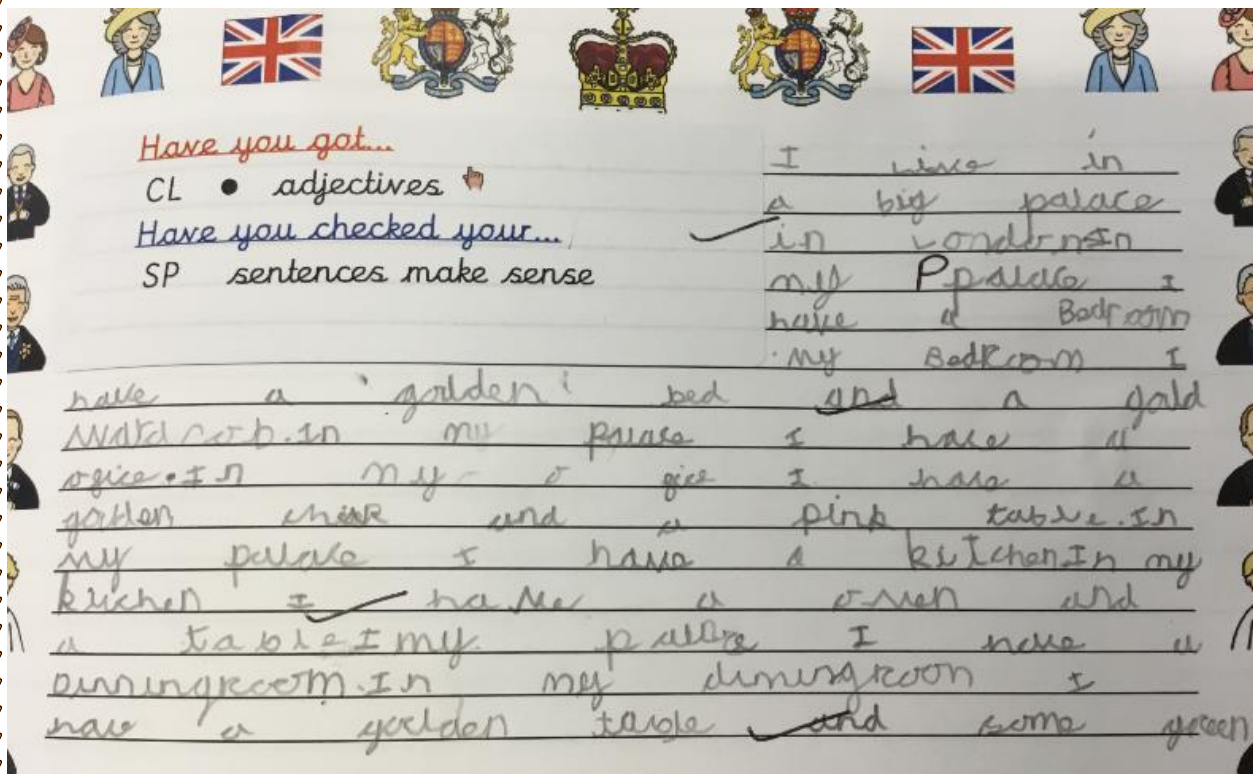 Have you got...
CL • adjectives
Have you checked your...
SP sentences make sense
I live in
a big palace
in London.In
my Ppalace I
have a Bedroom
.my BedRoom I
have a golden bed and a gold
wardrob.In my palace I have a
ofice.In my ofice I have a
golden chair and a pink table.In
my palace I have a kitchenIn my
kitchen I have a oven and
a tableI my palace I have a
Diningroom.In my diningroon I
have a golden table and some green